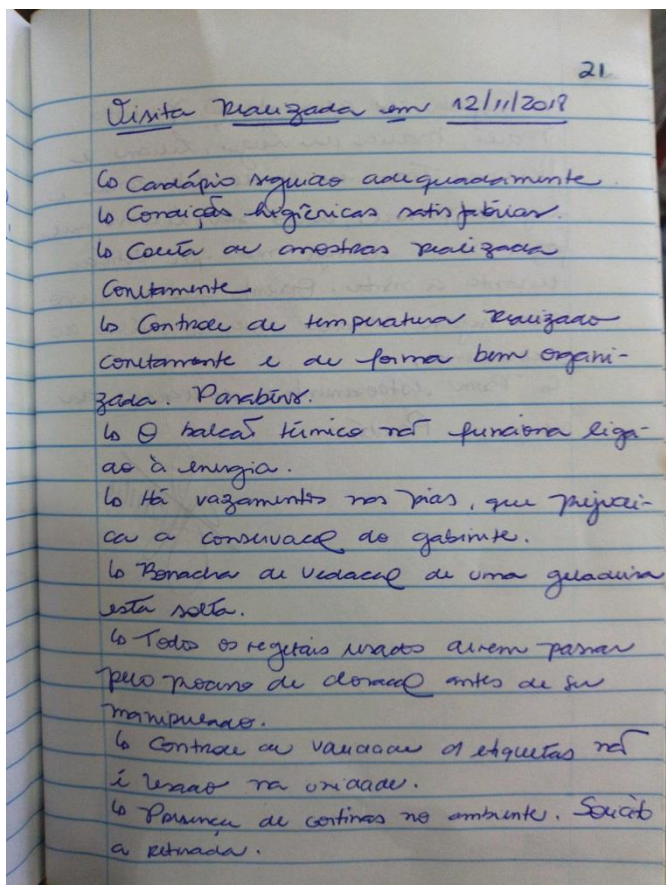 21
Visita realizada em 12/11/2018
↳ Cardápio seguido adequadamente.
↳ Condições higiênicas satisfatórias.
↳ Coleta de amostras realizada
corretamente.
↳ Controle de temperatura realizado
corretamente e de forma bem organi-
zada. Parabéns.
↳ O balcão térmico não funciona liga-
do à energia.
↳ Há vazamentos nas pias, que prejudi-
ca a conservação do gabinete.
↳ Borracha de vedação de uma geladeira
está solta.
↳ Todos os vegetais usados devem passar
pelo processo de cloração antes de ser
manipulado.
↳ Controle de validade de etiquetas não
é usado na unidade.
↳ Presença de cortinas no ambiente. Solicito
a retirada.